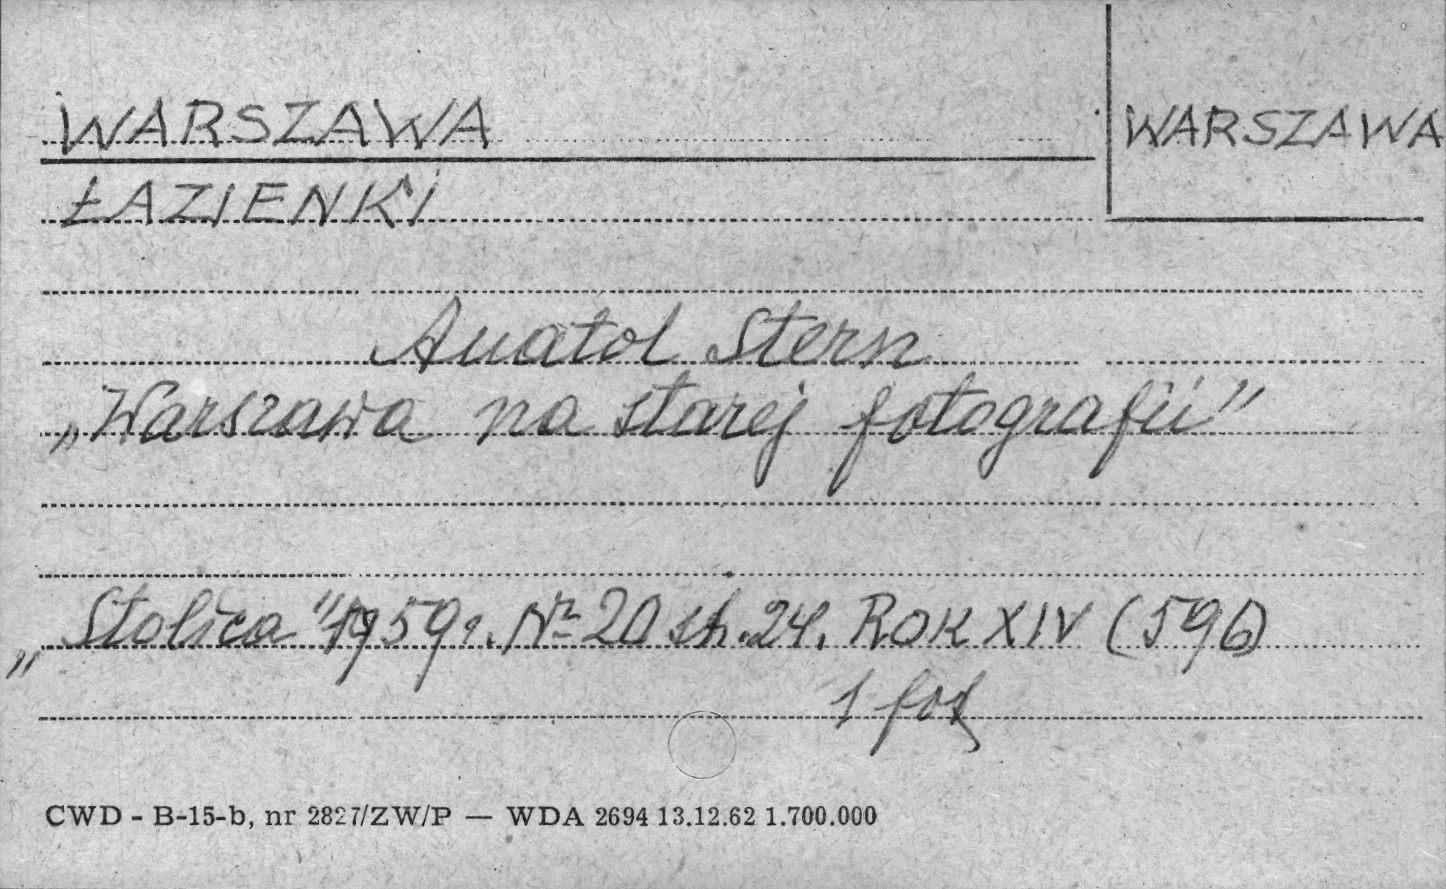 WARSZAWA
WARSZAWA
ŁAZIENKI
Anatol Stern
„Warszawa na starej fotografii”
„Stolica” 1959 r. Nr 20 str. 24. ROK XIV (596)
1 fot
CWD - B-15-b, nr 2827/ZW/P — WDA 2694 13.12.62 1.700.000